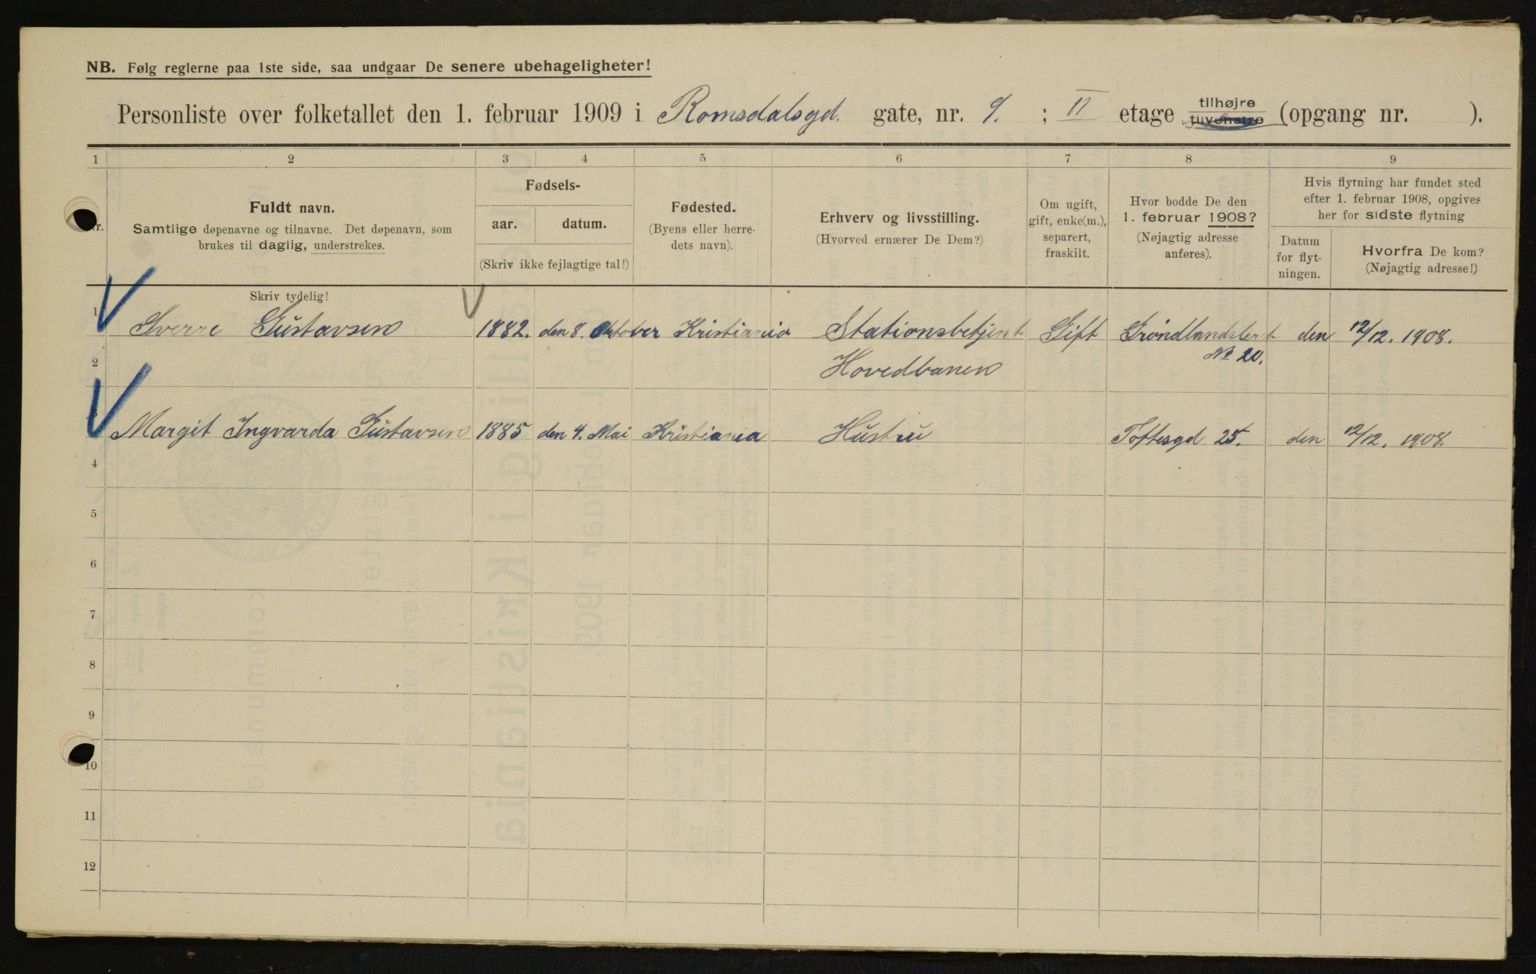 NB. Følg reglerne paa 1ste side, saa undgaar De senere ubehageligheter!
Personliste over folketallet den 1. februar 1909 i Romsdalsgd. gate, nr. 9. ; II etage tilhøjre tilvenstre (opgang nr. ).
1 2 3 4 5 6 7 8 9
Nr.
Fuldt navn.
Samtlige døpenavne og tilnavne. Det døpenavn, som
brukes til daglig, understrekes.
Skriv tydelig!
Fødsels-
aar. datum.
(Skriv ikke fejlagtige tal!)
Fødested.
(Byens eller herre-
dets navn).
Erhverv og livsstilling.
(Hvorved ernærer De Dem?)
Om ugift,
gift, enke(m.),
separert,
fraskilt.
Hvor bodde De den
1. februar 1908?
(Nøjagtig adresse
anføres).
Hvis flytning har fundet sted
efter 1. februar 1908, opgives
her for sidste flytning
Datum
for flyt-
ningen.
Hvorfra De kom?
(Nøjagtig adresse!)
1 Sverre Gustavsen 1882. den 8. Oktober Kristiania Stationsbetjent Gift Grøndlandsleret den 12/12. 1908.
2 Hovedbanen No 20.
3 Margit Ingvarda Gustavsen 1885 den 4. Mai Kristiania Hustru Toftesgd 25. den 12/12. 1908.
4
5
6
7
8
9
10
11
12